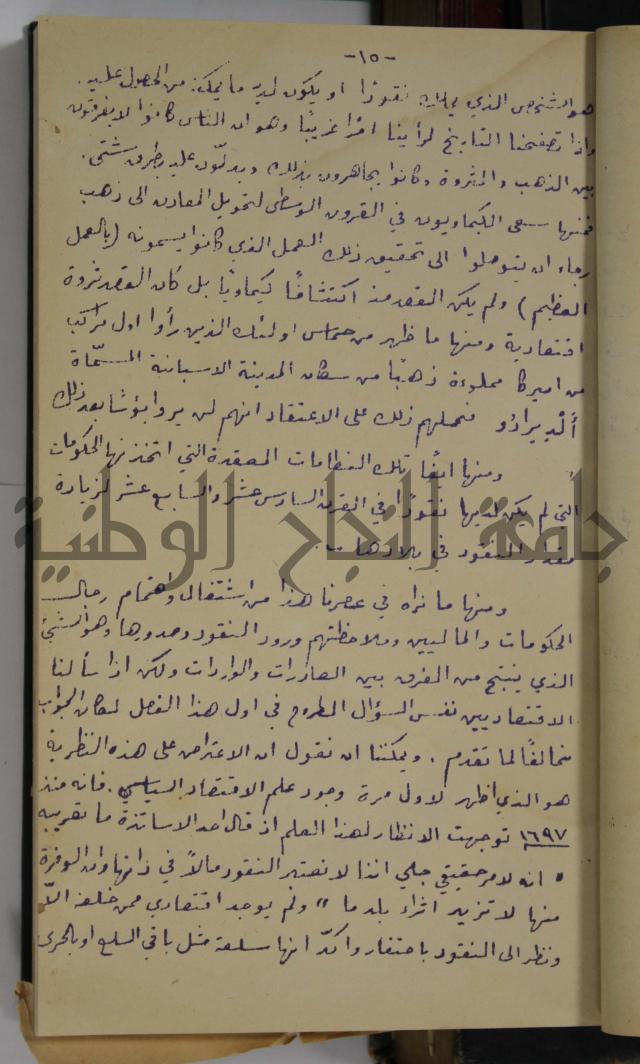 -١٥-
هو الشخص الذي يملك نقودًا او يكون لديه ما يمكنه من الحصول عليه.
واذا تصفحنا التاريخ لرأينا امرًا غريبًا وهو ان الناس كانوا لا يفرقون
بين الذهب والثروة وكانوا يجاهرون بذلك ويدلّون عليه بطرق شتى.
فمنها سعى الكيماويون في القرون الوسطى لتحويل المعادن الى ذهب
رجاء ان يتوصلوا الى تحقيق ذلك العمل الذي كانوا يسمونه (بالعمل
العظيم) ولم يكن القصد منه اكتشافًا كيماويًا بل كان القصد ثروة
اقتصادية ومنها ما ظهر من حماس اولئك الذين رأوا اول مركب
من اميركا مملوءة ذهبًا من سكان المدينة الاسبانية المسمّاة
ألديرادو فحملهم ذلك على الاعتقاد انهم لن يروا بؤسًا بعد ذلك
ومنها ايضًا تلك النظامات المعقدة التي اتخذتها الحكومات
التي لم يكن لديها نقودًا في القرن السادس عشر والسابع عشر لزيادة
مقدار النقود في بلادها
جامعة النجاح الوطنية
ومنها ما نراه في عصرنا هذا من اشتغال واهتمام رجال
الحكومات والماليين وملاحظتهم ورود النقود وصدورها وهو الشيء
الذي ينتج من الفرق بين الصادرات والواردات ولكن اذا سألنا
الاقتصاديين نفس السؤال المطروح في اول هذا الفصل لكان الجواب
مخالفًا لما تقدم. ويمكننا ان نقول ان الاعتراض على هذه النظرية
هو الذي اظهر لاول مرة وجود علم الاقتصاد السياسي. فانه منذ
١٦٩٧ توجهت الانظار لهذا العلم اذ قال احد الاساتذة ما تقريبه
" انه لامر حقيقي جلي اننا لا نعتبر النقود مالاً في ذاتها وان الوفرة
منها لا تزيد اثراء بلد ما " ولم يوجد اقتصادي ممن خلفه الاّ
ونظر الى النقود باحتقار واكدّ انها سلعة مثل باقي السلع او بالحرى